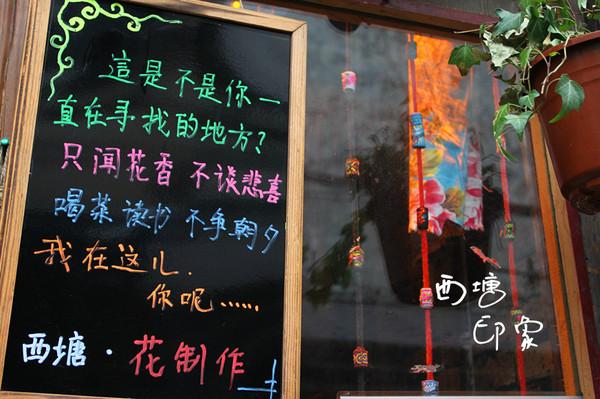 這是不是你一
直在寻找的地方?
只闻花香 不谈悲喜
喝茶 读书 不争朝夕
我在这儿.
你呢......
西塘·花制作
西塘
印象